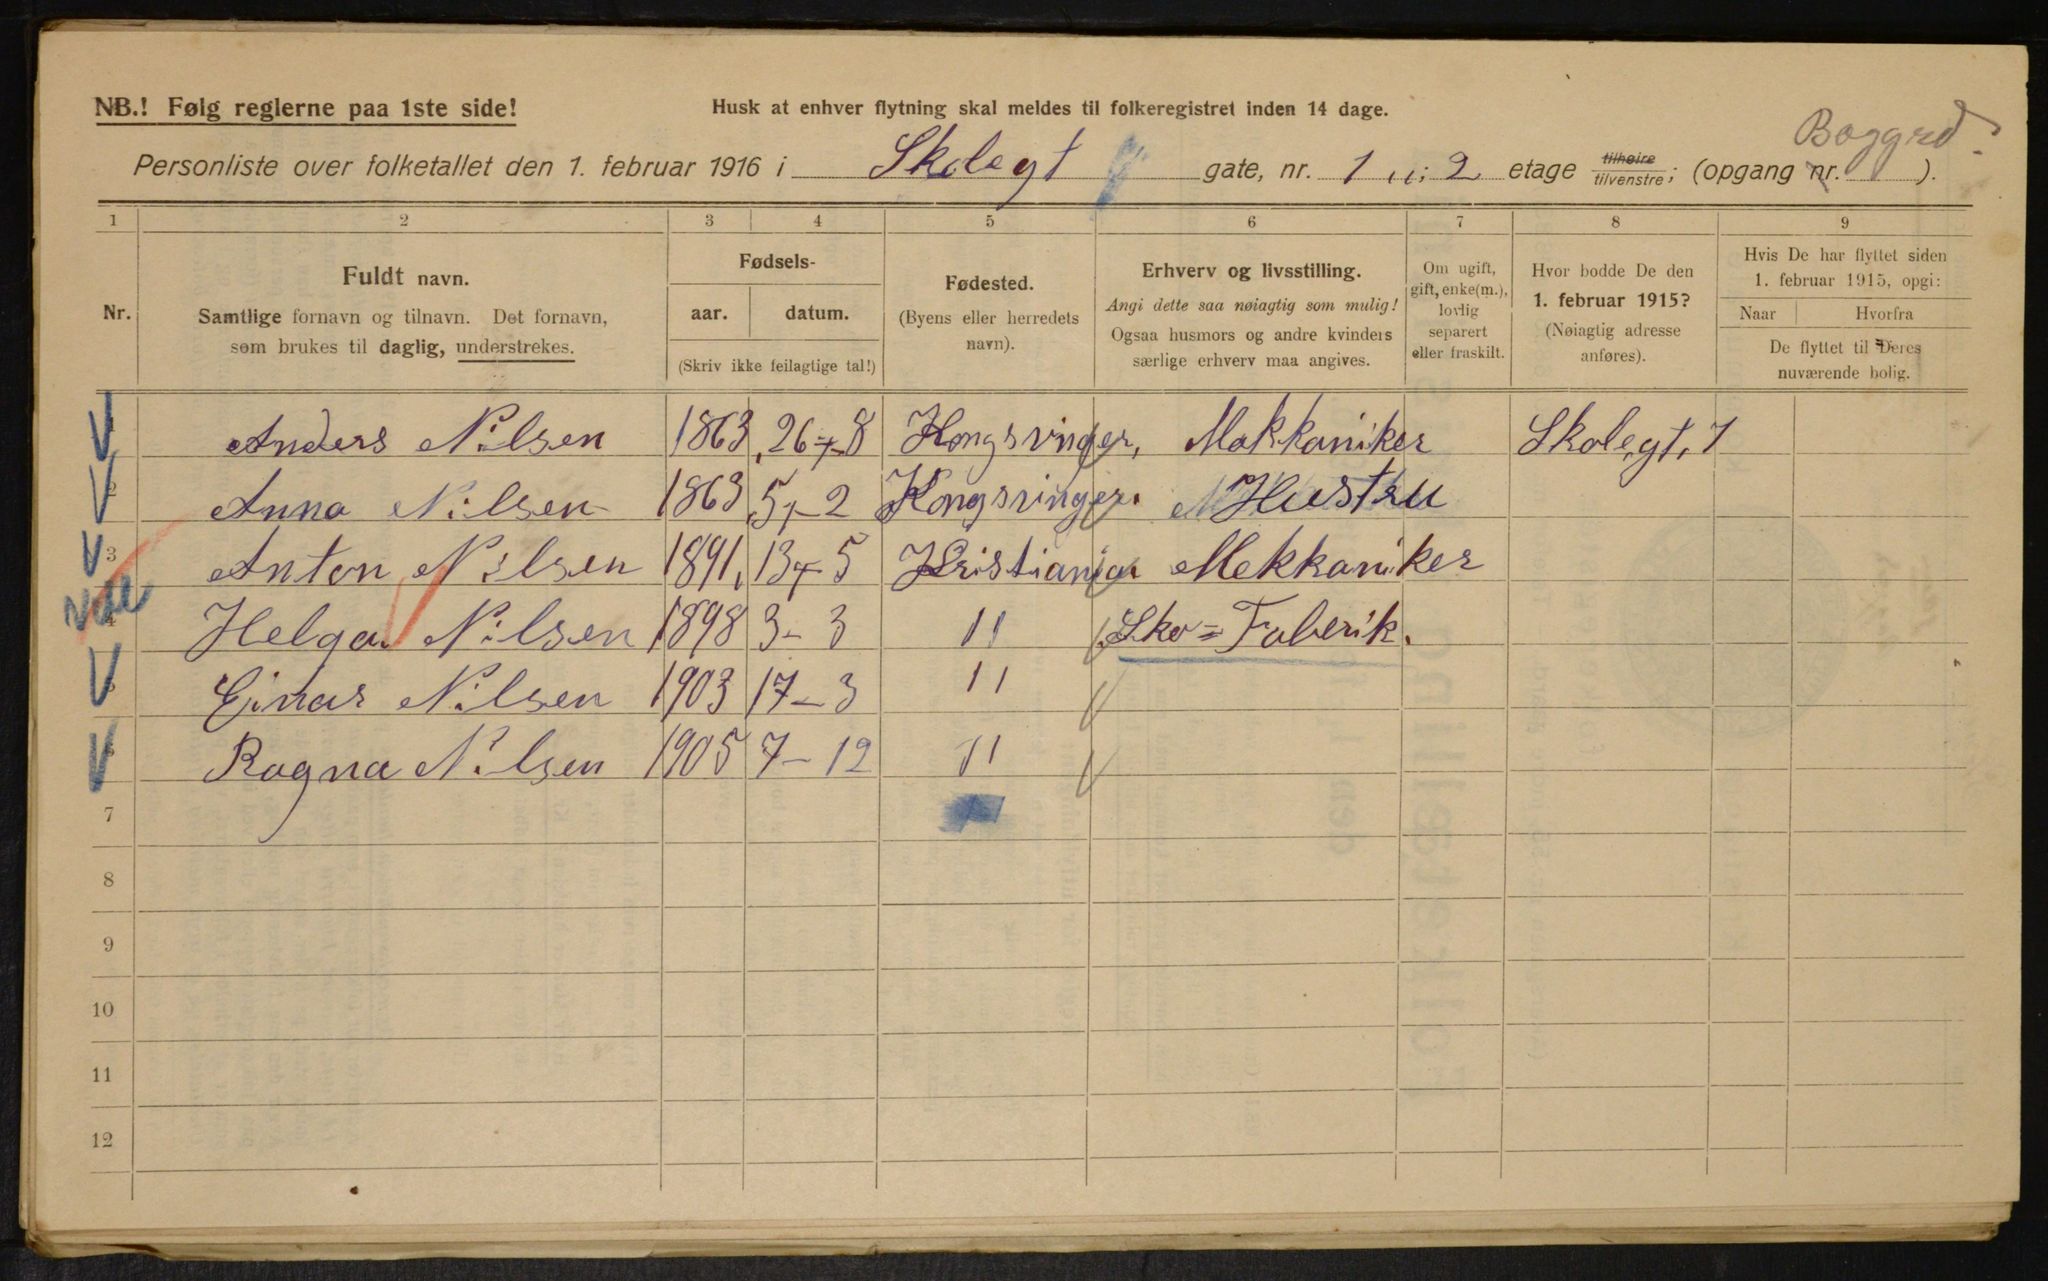 NB.! Følg reglerne paa 1ste side!
Husk at enhver flytning skal meldes til folkeregistret inden 14 dage.
Baggrd.
Personliste over folketallet den 1. februar 1916 i Skolegt gate, nr. 1 ; 2 etage tilhøire tilvenstre; (opgang nr. ).
1 2 3 4 5 6 7 8 9
Nr.
Fuldt navn.
Samtlige fornavn og tilnavn. Det fornavn,
som brukes til daglig, understrekes.
Fødsels-
aar. datum.
(Skriv ikke feilagtige tal!)
Fødested.
(Byens eller herredets
navn).
Erhverv og livsstilling.
Angi dette saa nøiagtig som mulig!
Ogsaa husmors og andre kvinders
særlige erhverv maa angives.
Om ugift,
gift, enke(m.),
lovlig
separert
eller fraskilt.
Hvor bodde De den
1. februar 1915?
(Nøiagtig adresse
anføres).
Hvis De har flyttet siden
1. februar 1915, opgi:
Naar Hvorfra
De flyttet til Deres
nuværende bolig.
Anders Nilsen 1863 26-8 Kongsvinger, Makkaniker Skolegt. 1
2 Anna Nilsen 1863 5-2 Kongsvinger. Hustru
3 Anton Nilsen 1891 13-5 Kristiania Mekkaniker
4 Helga Nilsen 1898 3-3 11 Sko=Faberik.
5 Einar Nilsen 1903 17-3 11
6 Ragna Nilsen 1905 7-12 11
7
8
9
10
11
12